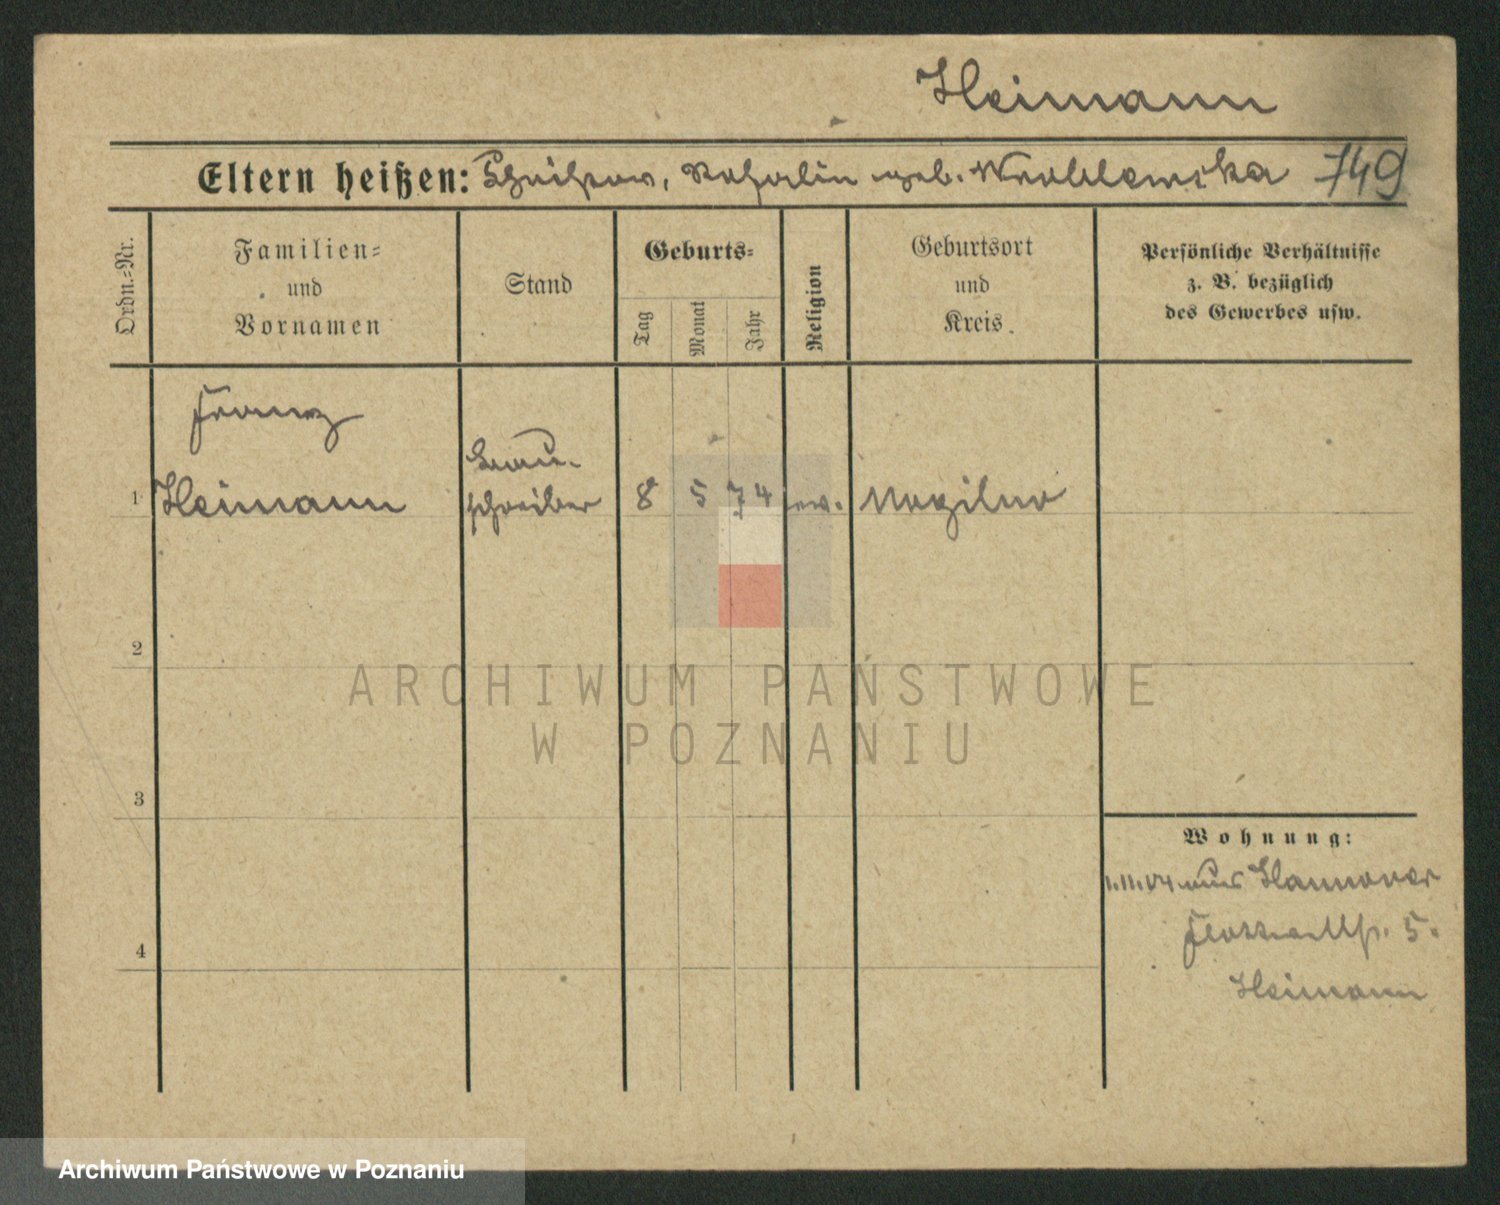 Heimann
Eltern heißen: Rosalin geb. Wroblewska 749
Ordn.=Nr.
Familien=
und
Vornamen
Stand
Geburts=
Tag
Monat
Jahr
Religion
Geburtsort
und
Kreis.
Persönliche Verhältnisse
z. B. bezüglich
des Gewerbes usw.
Franz
1 Heimann
schreiber
8 5 74 ev. Mogilno
2
3
4
Wohnung:
1.11.04 aus Hannover
5.
Heimann
ARCHIWUM PAŃSTWOWE
W POZNANIU
Archiwum Państwowe w Poznaniu